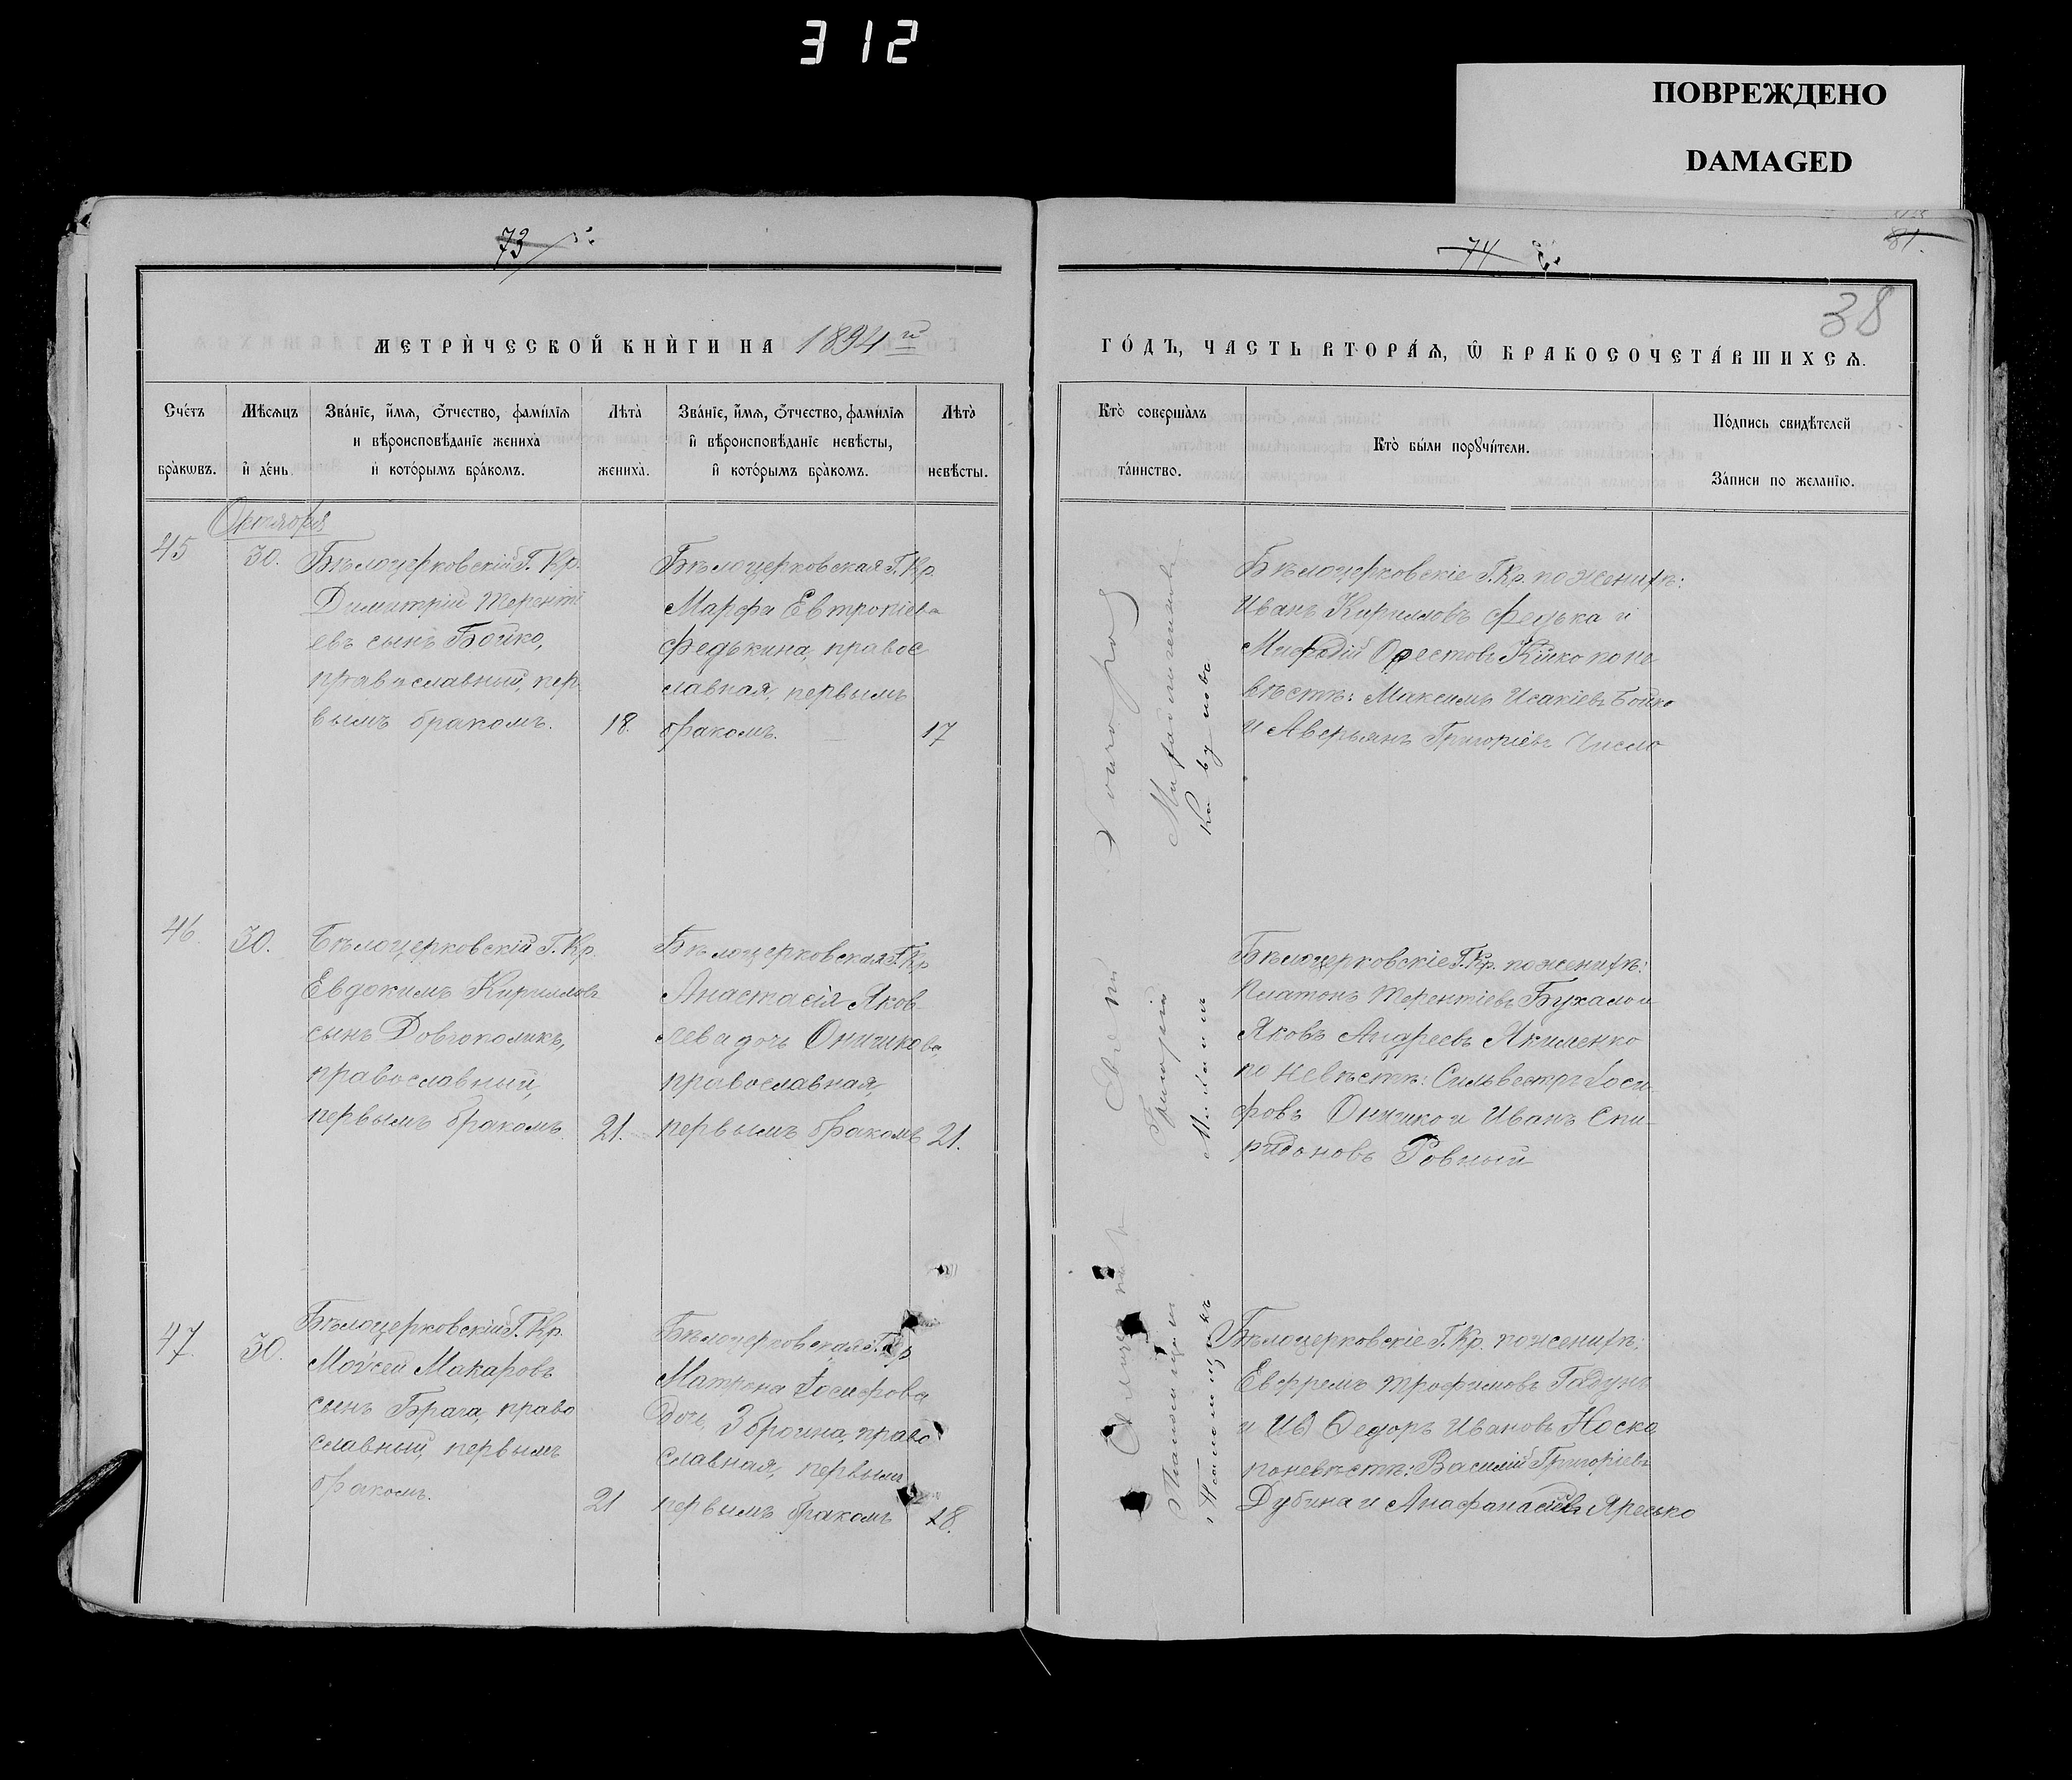 312
ПОВРЕЖДЕНО
DAMAGED
73
74
81
38
МЕТРИ́ЧЕСКОЙ КНИ́ГИ НА 1894 й
ГО́ДЪ, ЧАСТЬ ВТОРА́Ѧ, Ѿ БРАКОСОЧЕТА́ВШИХСѦ.
Сче́тъ
бра́кѡвъ.
Мѣ́сѧцъ
и҆ де́нь
Зва́нїе, и҆́мѧ, ѻ҆́тчество, фами́лїѧ
и вѣроисповѣ́данїе жениха̀
и҆ кото́рымъ бра́комъ.
Лѣта̀
жениха̀.
Зва́нїе, и҆́мѧ, ѻ҆́тчество, фами́лїѧ
и҆ вѣроисповѣ́данїе невѣ́сты,
и҆ кото́рымъ бра́комъ.
Лѣта̀
невѣ́сты.
Кто̀ соверша́лъ
та́инство.
Кто̀ бы́ли порꙋчи́тели.
По́дпись свидѣ́телей
За́писи по жела́нїю.
Октября
45
30.
Бѣлоцерковскій Г. Кр.
Димитрій Теренті
евъ сынъ Бойко,
православный, пер
вымъ бракомъ.
18.
Бѣлоцерковская Г. Кр.
Марфа Евтропіева
Федькина, правос
лавная, первымъ
бракомъ.
17
Бѣлоцерковскіе Г. Кр. по женихѣ:
Иванъ Кирилловъ Федька и
Орестовъ по не
вѣстѣ: Максимъ Исакіевъ Бойко
и Аверьянъ Григоріевъ Число
46.
30.
Бѣлоцерковскій Г. Кр.
Евдокимъ Кирилловъ
сынъ
православный,
первымъ бракомъ.
21.
Бѣлоцерковская Г. Кр
Анастасія Яков
лева дочь Онишкова,
православная,
первымъ бракомъ
21.
Бѣлоцерковскіе Г. Кр. по женихѣ:
Платонъ Терентіевъ Бухало и
Яковъ Андреевъ Якименко
по невѣстѣ: Сильвестръ Іоси
фовъ Онишко и Иванъ Спи
ридоновъ Ровный
47.
30.
Бѣлоцерковскій Г. Кр.
Моѵсей Макаровъ
сынъ Брага, право
славный, первымъ
бракомъ.
21
Бѣлоцерковская Г. Кр
Матрона Іосифова
дочь Зброина, право
славная, первым
первымъ бракомъ
18.
Бѣлоцерковскіе Г. Кр. по женихѣ:
Евфремъ Трофимовъ Гадунъ
и Ив Ѳедоръ Ивановъ Носка
по невѣстѣ: Василій Григоріевъ
Дубина и Яресько
Григорій